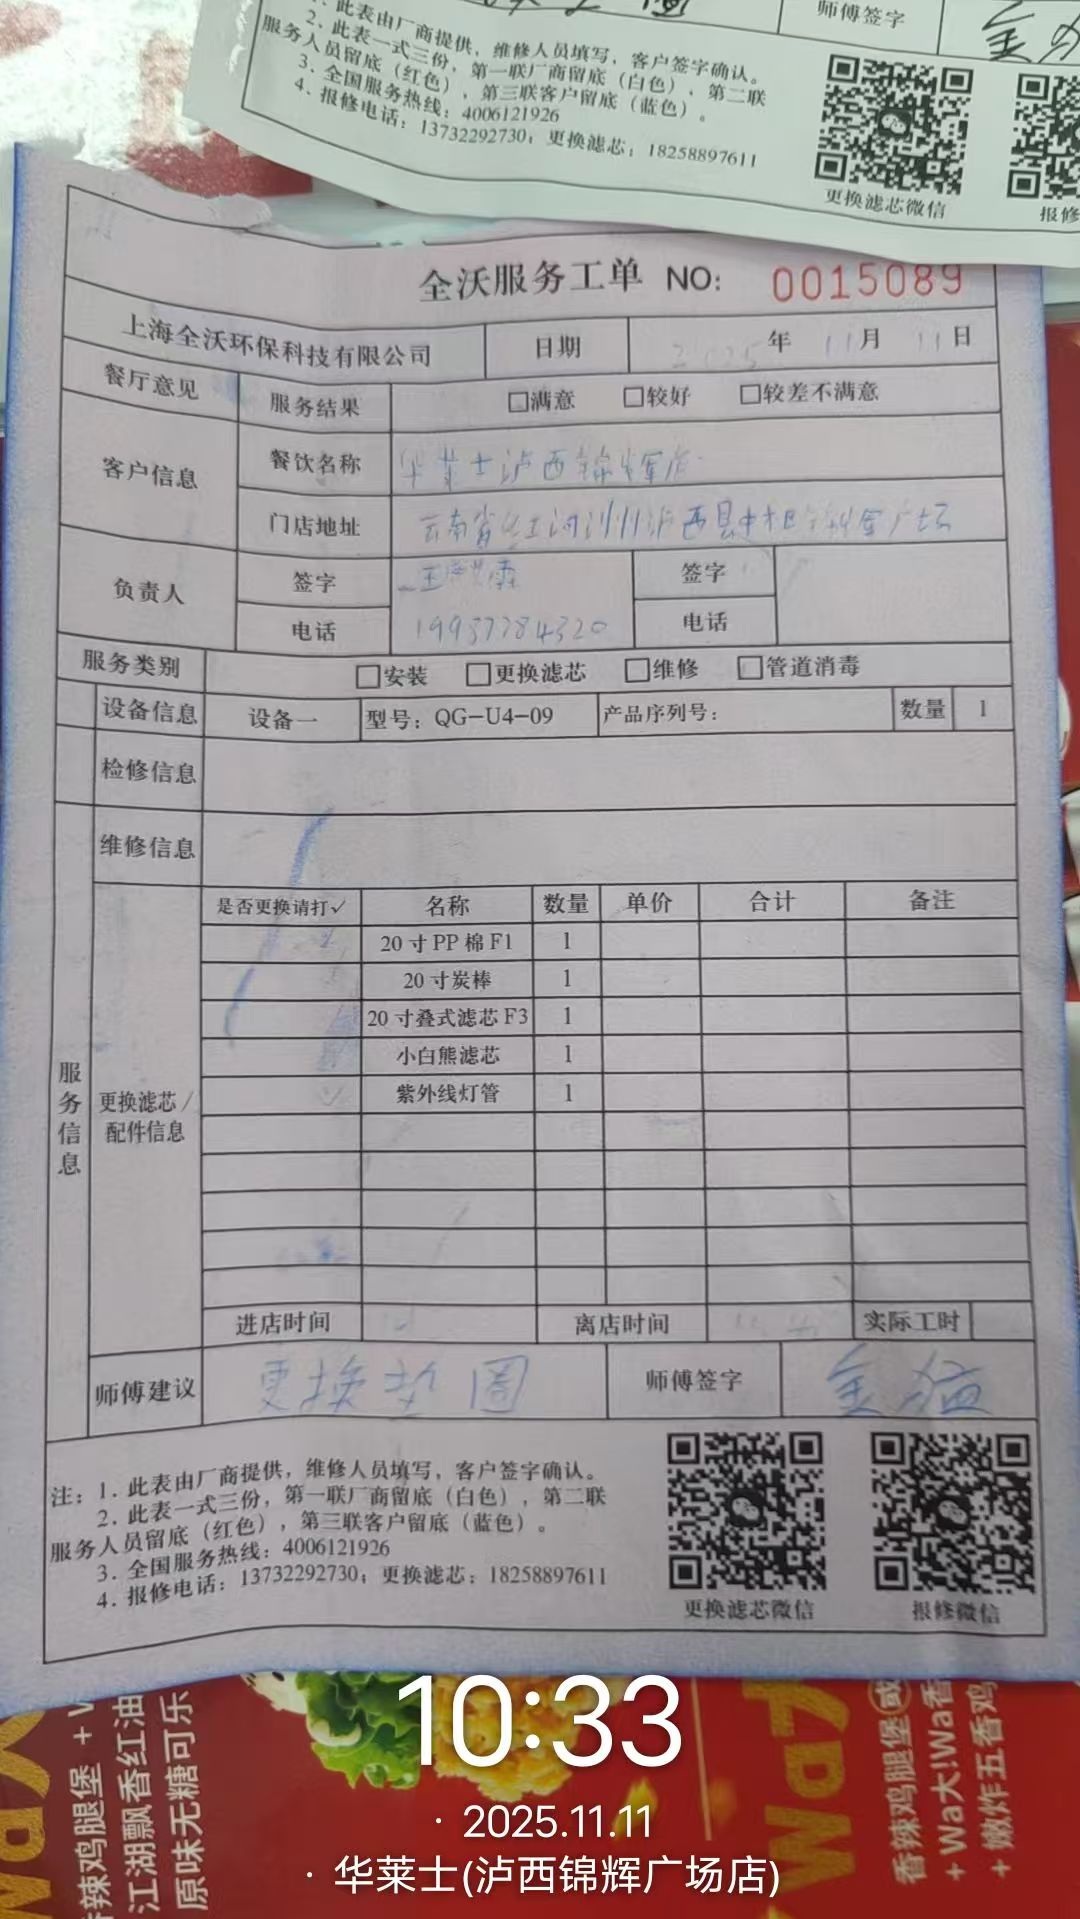 1. 此表由厂商提供，维修人员填写，客户签字确认。
2. 此表一式三份，第一联厂商留底（白色），第二联
服务人员留底（红色），第三联客户留底（蓝色）。
3. 全国服务热线：4006121926
4. 报修电话：13732292730；更换滤芯：18258897611
师傅签字
更换滤芯微信
报修
全沃服务工单 NO: 0015089
上海全沃环保科技有限公司 日期 2025年11月11日
餐厅意见 服务结果 □满意 □较好 □较差不满意
客户信息 餐饮名称 华莱士泸西锦辉店
门店地址 云南省红河州泸西县中枢锦辉广场
负责人 签字 签字
电话 19937784320 电话
服务类别 □安装 □更换滤芯 □维修 □管道消毒
设备信息 设备一 型号：QG-U4-09 产品序列号： 数量 1
检修信息
维修信息
服务信息
更换滤芯/配件信息
是否更换请打✓ 名称 数量 单价 合计 备注
20寸PP棉F1 1
20寸炭棒 1
20寸叠式滤芯F3 1
小白熊滤芯 1
✓ 紫外线灯管 1
进店时间 离店时间 实际工时
师傅建议 更换 圈 师傅签字
注：1. 此表由厂商提供，维修人员填写，客户签字确认。
2. 此表一式三份，第一联厂商留底（白色），第二联
服务人员留底（红色），第三联客户留底（蓝色）。
3. 全国服务热线：4006121926
4. 报修电话：13732292730；更换滤芯：18258897611
更换滤芯微信 报修微信
香辣鸡腿堡 + W
江湖飘香红油
原味无糖可乐
WaW
香辣鸡腿堡或
+ Wa大!Wa香
+ 嫩炸五香鸡
10:33
· 2025.11.11
· 华莱士(泸西锦辉广场店)